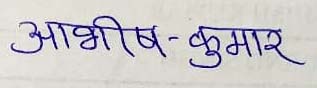 आशीष-कुमार